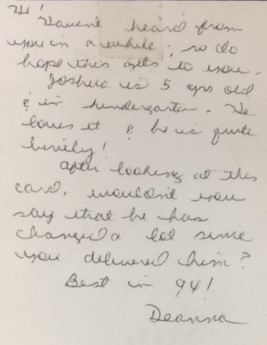 Hi!
Haven't heard from
you in a while; so do
hope this gets to you.
Joshua is 5 yrs old
& in kindergarten. He
loves it & he is quite
lively!
After looking at this
card, wouldn't you
say that he has
changed a lot since
you delivered him?
Best in 94!
Deanna